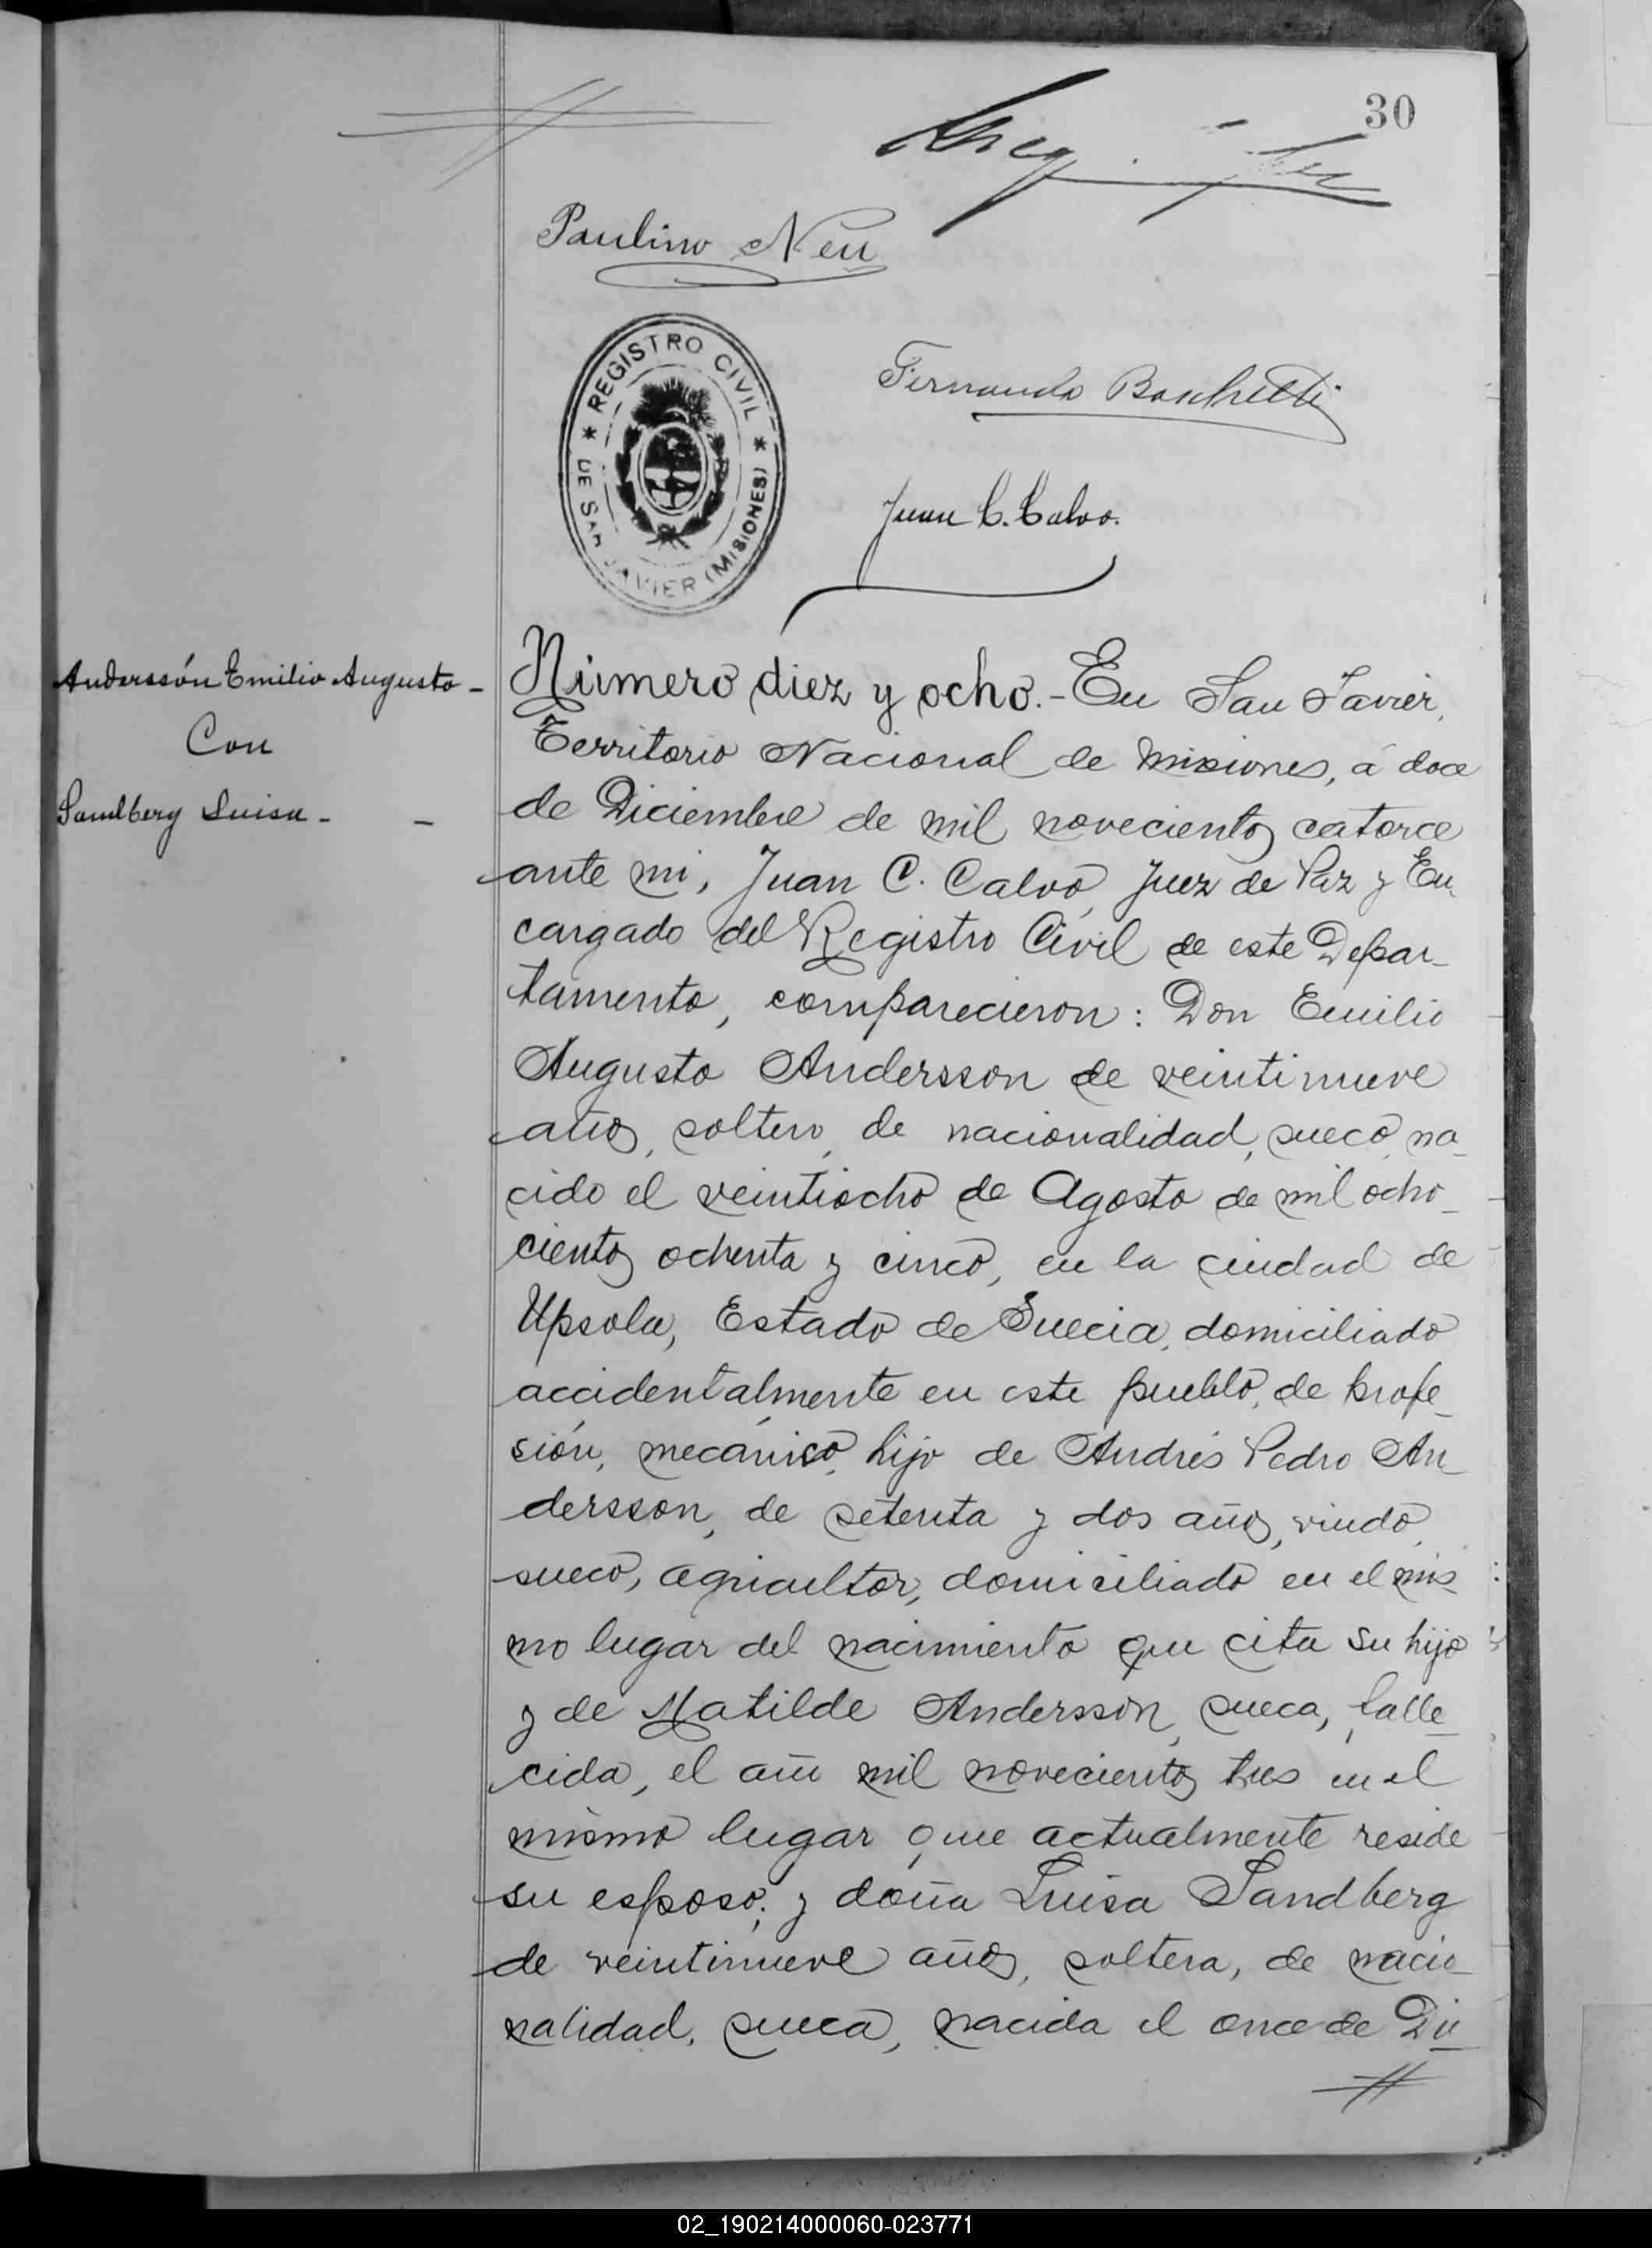 30
Paulino Neu
REGISTRO CIVIL
DE SAN JAVIER (MISIONES)
Fernando
Juan C. Calvo.
Anderssón Emilio Augusto -
Con
Sandberg Luisa - -
Número diez y ocho. - En San Javier,
Territorio Nacional de Misiones, á doce
de Diciembre de mil novecientos catorce
ante mi, Juan C. Calvo, Juez de Paz y En-
cargado del Registro Civil de este Depar-
tamento, comparecieron: Don Emilio
Augusto Andersson de veintinueve
años, soltero, de nacionalidad, sueco, na-
cido el veintiocho de Agosto de mil ocho-
cientos ochenta y cinco, en la ciudad de
Upsola, Estado de Suecia, domiciliado
accidentalmente en este pueblo, de profe-
sión, mecánico, hijo de Andrés Pedro An-
dersson, de setenta y dos años, viudo,
sueco, agricultor, domiciliado en el mis-
mo lugar del nacimiento que cita su hijo
y de Matilde Andersson, sueca, falle-
cida, el año mil novecientos tres en el
mismo lugar que actualmente reside
su esposo; y doña Luisa Sandberg
de veintinueve años, soltera, de nacio-
nalidad, sueca, nacida el once de Di-
02_190214000060-023771